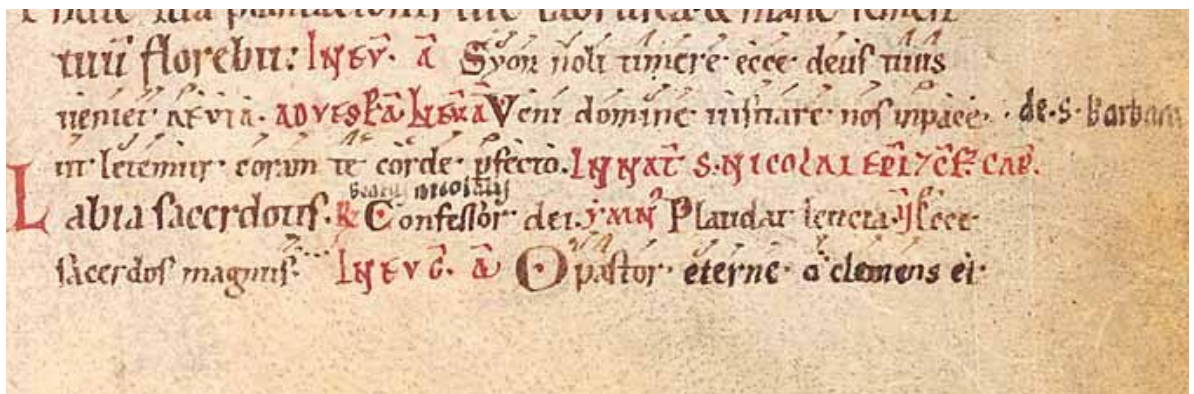 tuū florebit: IN EV̄. Ā Syon noli timere· ecce deus tuus
ueniet· AEVIA. AD VESP̄A. IN EV̄ Ā Veni domine uisitare nos inpace· de·S· Barbara
ut letemur coram te corde pfecto. IN NAT̄ S. NICOLAI EPI 7 CF̄. CAP̄.
beatus nicolaus
Labia sacerdotis. R̄ Confessor dei. YMN̄ Plaudat letetia. V̄ Ecce
sacerdos magnus. IN EVḠ. Ā O pastor eterne· o clemens et·